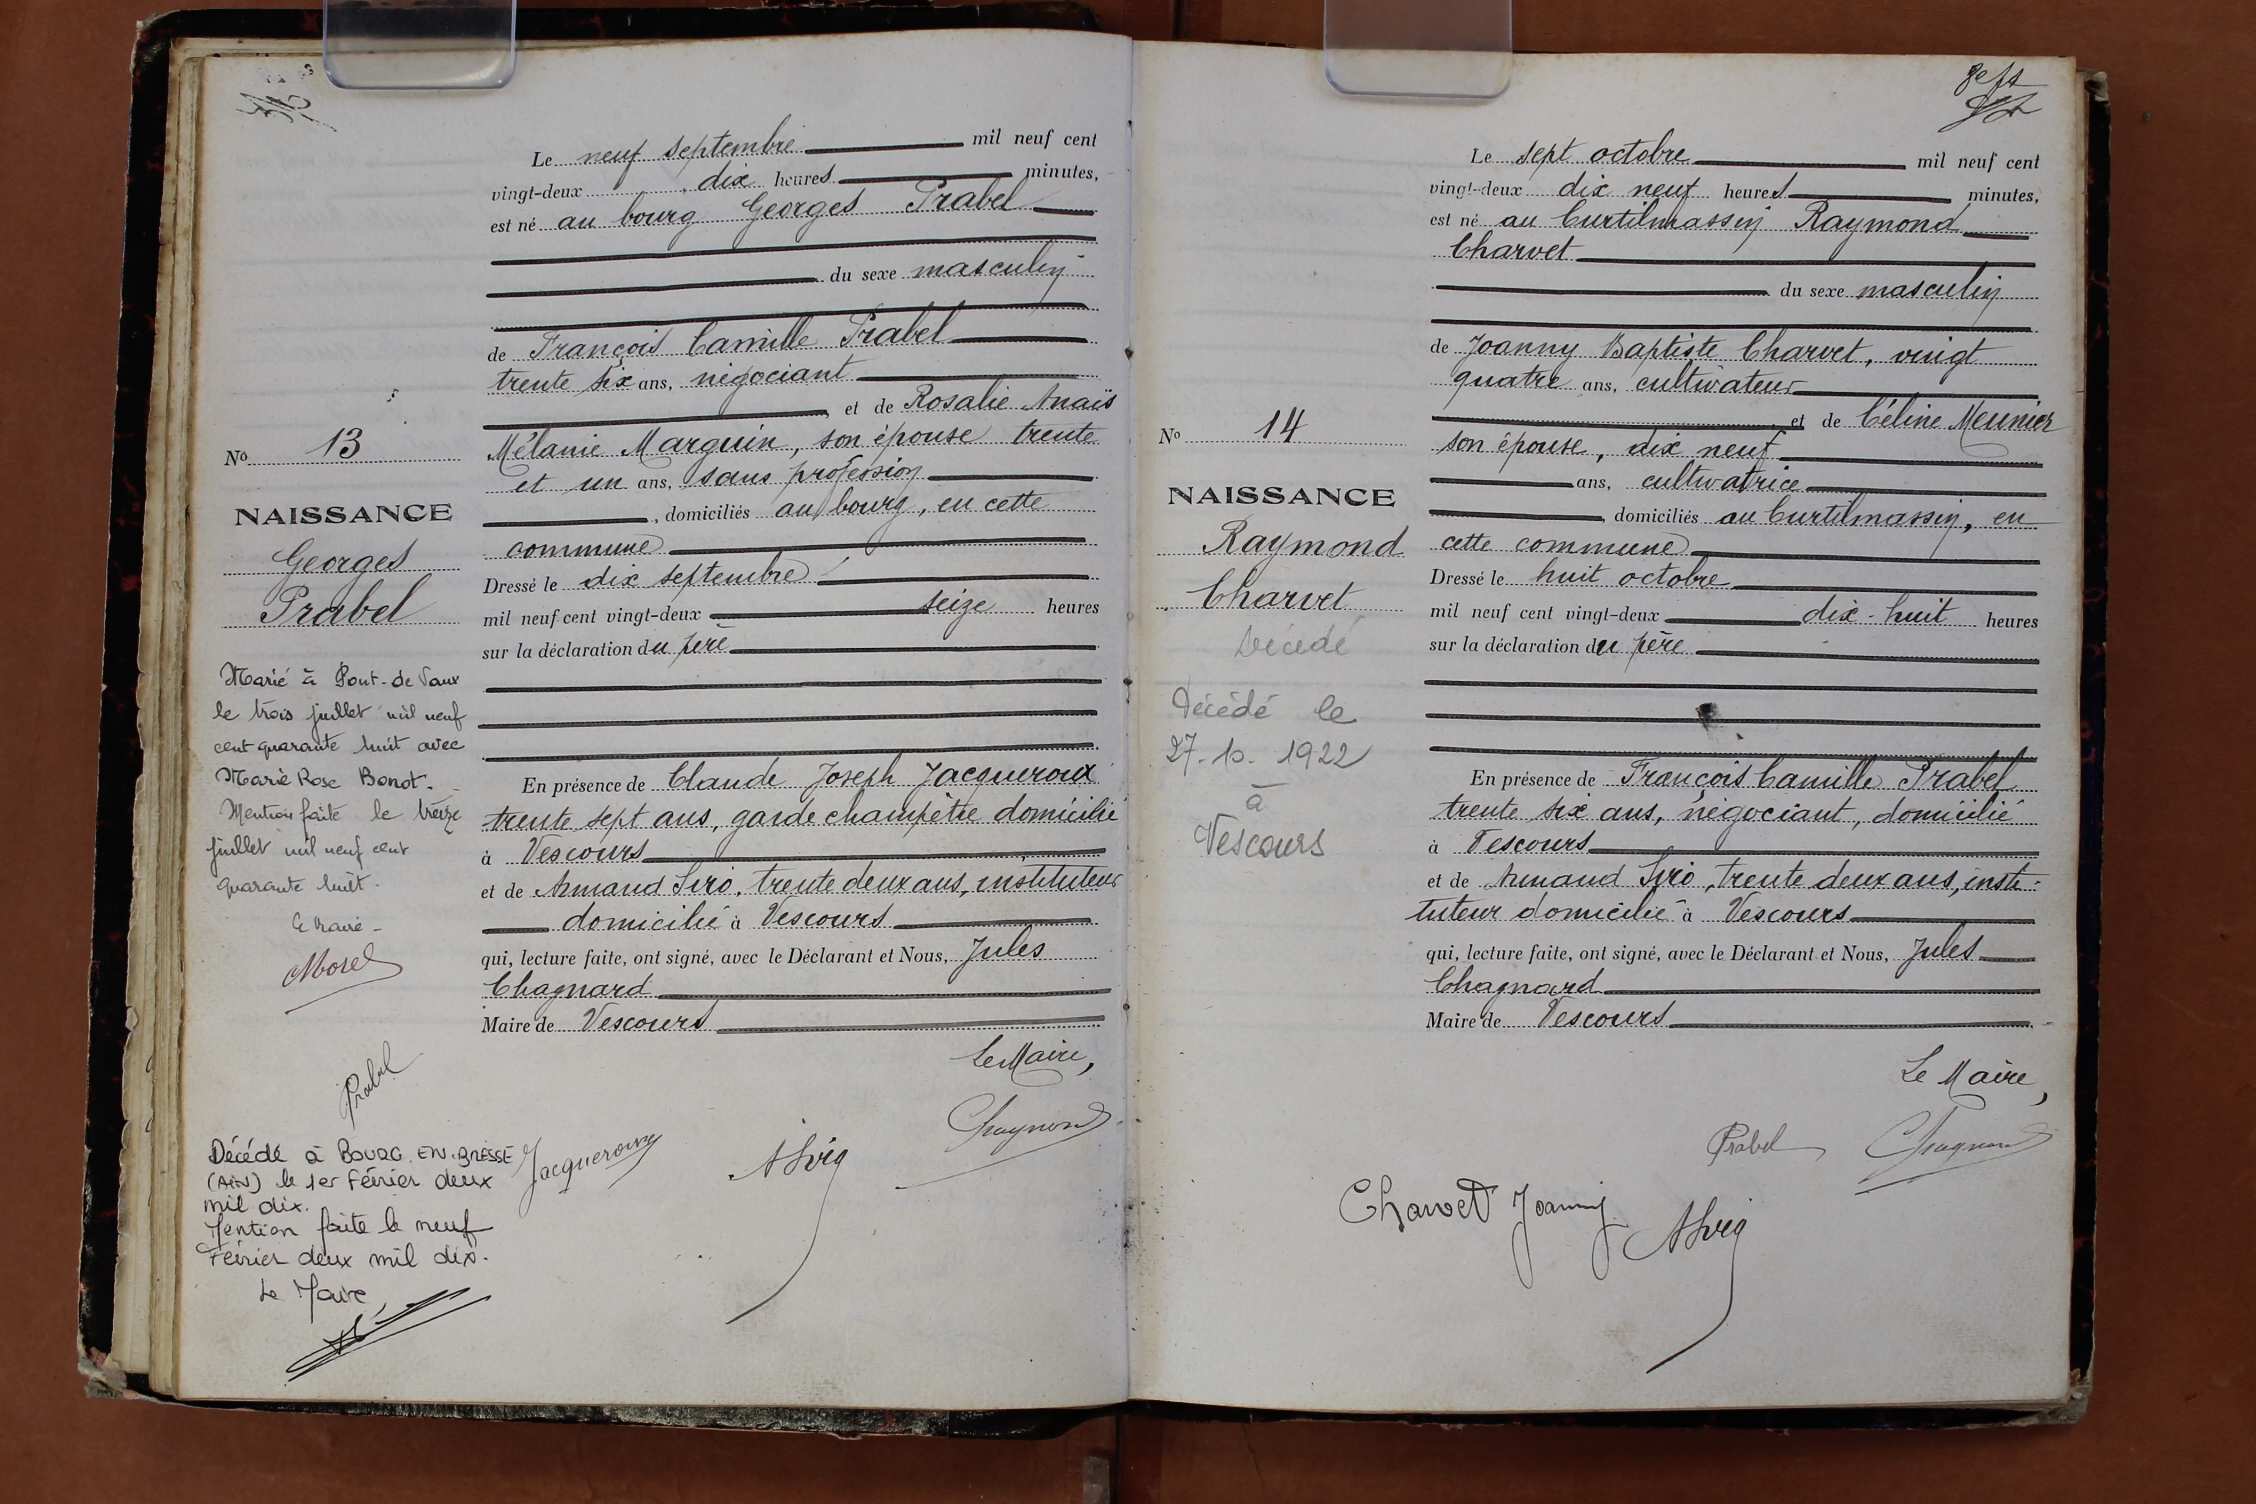 Le neuf septembre mil neuf cent
vingt-deux dix heures minutes,
est né au bourg Georges Prabel
du sexe masculin
de François Camille Prabel
trente six ans, négociant
et de Rosalie Anaïs
Mélanie Marguin, son épouse trente
et un ans, sans profession
, domiciliés au bourg, en cette
commune
Dressé le dix septembre
mil neuf cent vingt-deux seize heures
sur la déclaration du père
En présence de Claude Joseph Jacqueroux
trente sept ans, garde champêtre domicilié
à Vescours
et de Armand , trente deux ans, instituteur
domicilié à Vescours
qui, lecture faite, ont signé, avec le Déclarant et Nous, Jules
Chagnard
Maire de Vescours
Le Maire,
No 13
NAISSANCE
Georges
Prabel
Marié à Pont-de Vaux
le trois juillet mil neuf
cent quarante huit avec
Marie Rose Bonot.
Mention faite le treize
juillet mil neuf cent
quarante huit.
Le Maire -
Morel
Prabel
Jacqueroux
Chagnard
Décédé à BOURG.EN.BRESSE
(AIN) le 1er Février deux
mil dix.
Mention faite le neuf
Février deux mil dix.
Le Maire,
Le sept octobre mil neuf cent
vingt-deux dix neuf heures minutes,
est né au Curtilmassin Raymond
Charvet
du sexe masculin
de Joanny Baptiste Charvet, vingt
quatre ans, cultivateur
et de Céline Meunier
son épouse, dix neuf
ans, cultivatrice
, domiciliés au Curtilmassin, en
cette commune
Dressé le huit octobre
mil neuf cent vingt-deux dix-huit heures
sur la déclaration du père
En présence de François Camille Prabel
trente six ans, négociant, domicilié
à Vescours
et de Armand , trente deux ans, insti-
tuteur domicilié à Vescours
qui, lecture faite, ont signé, avec le Déclarant et Nous, Jules
Chagnard
Maire de Vescours
Le Maire,
No 14
NAISSANCE
Raymond
Charvet
Décédé
Décédé le
27.10.1922
à
Vescours
Prabel
Chagnard
Charvet Joanny